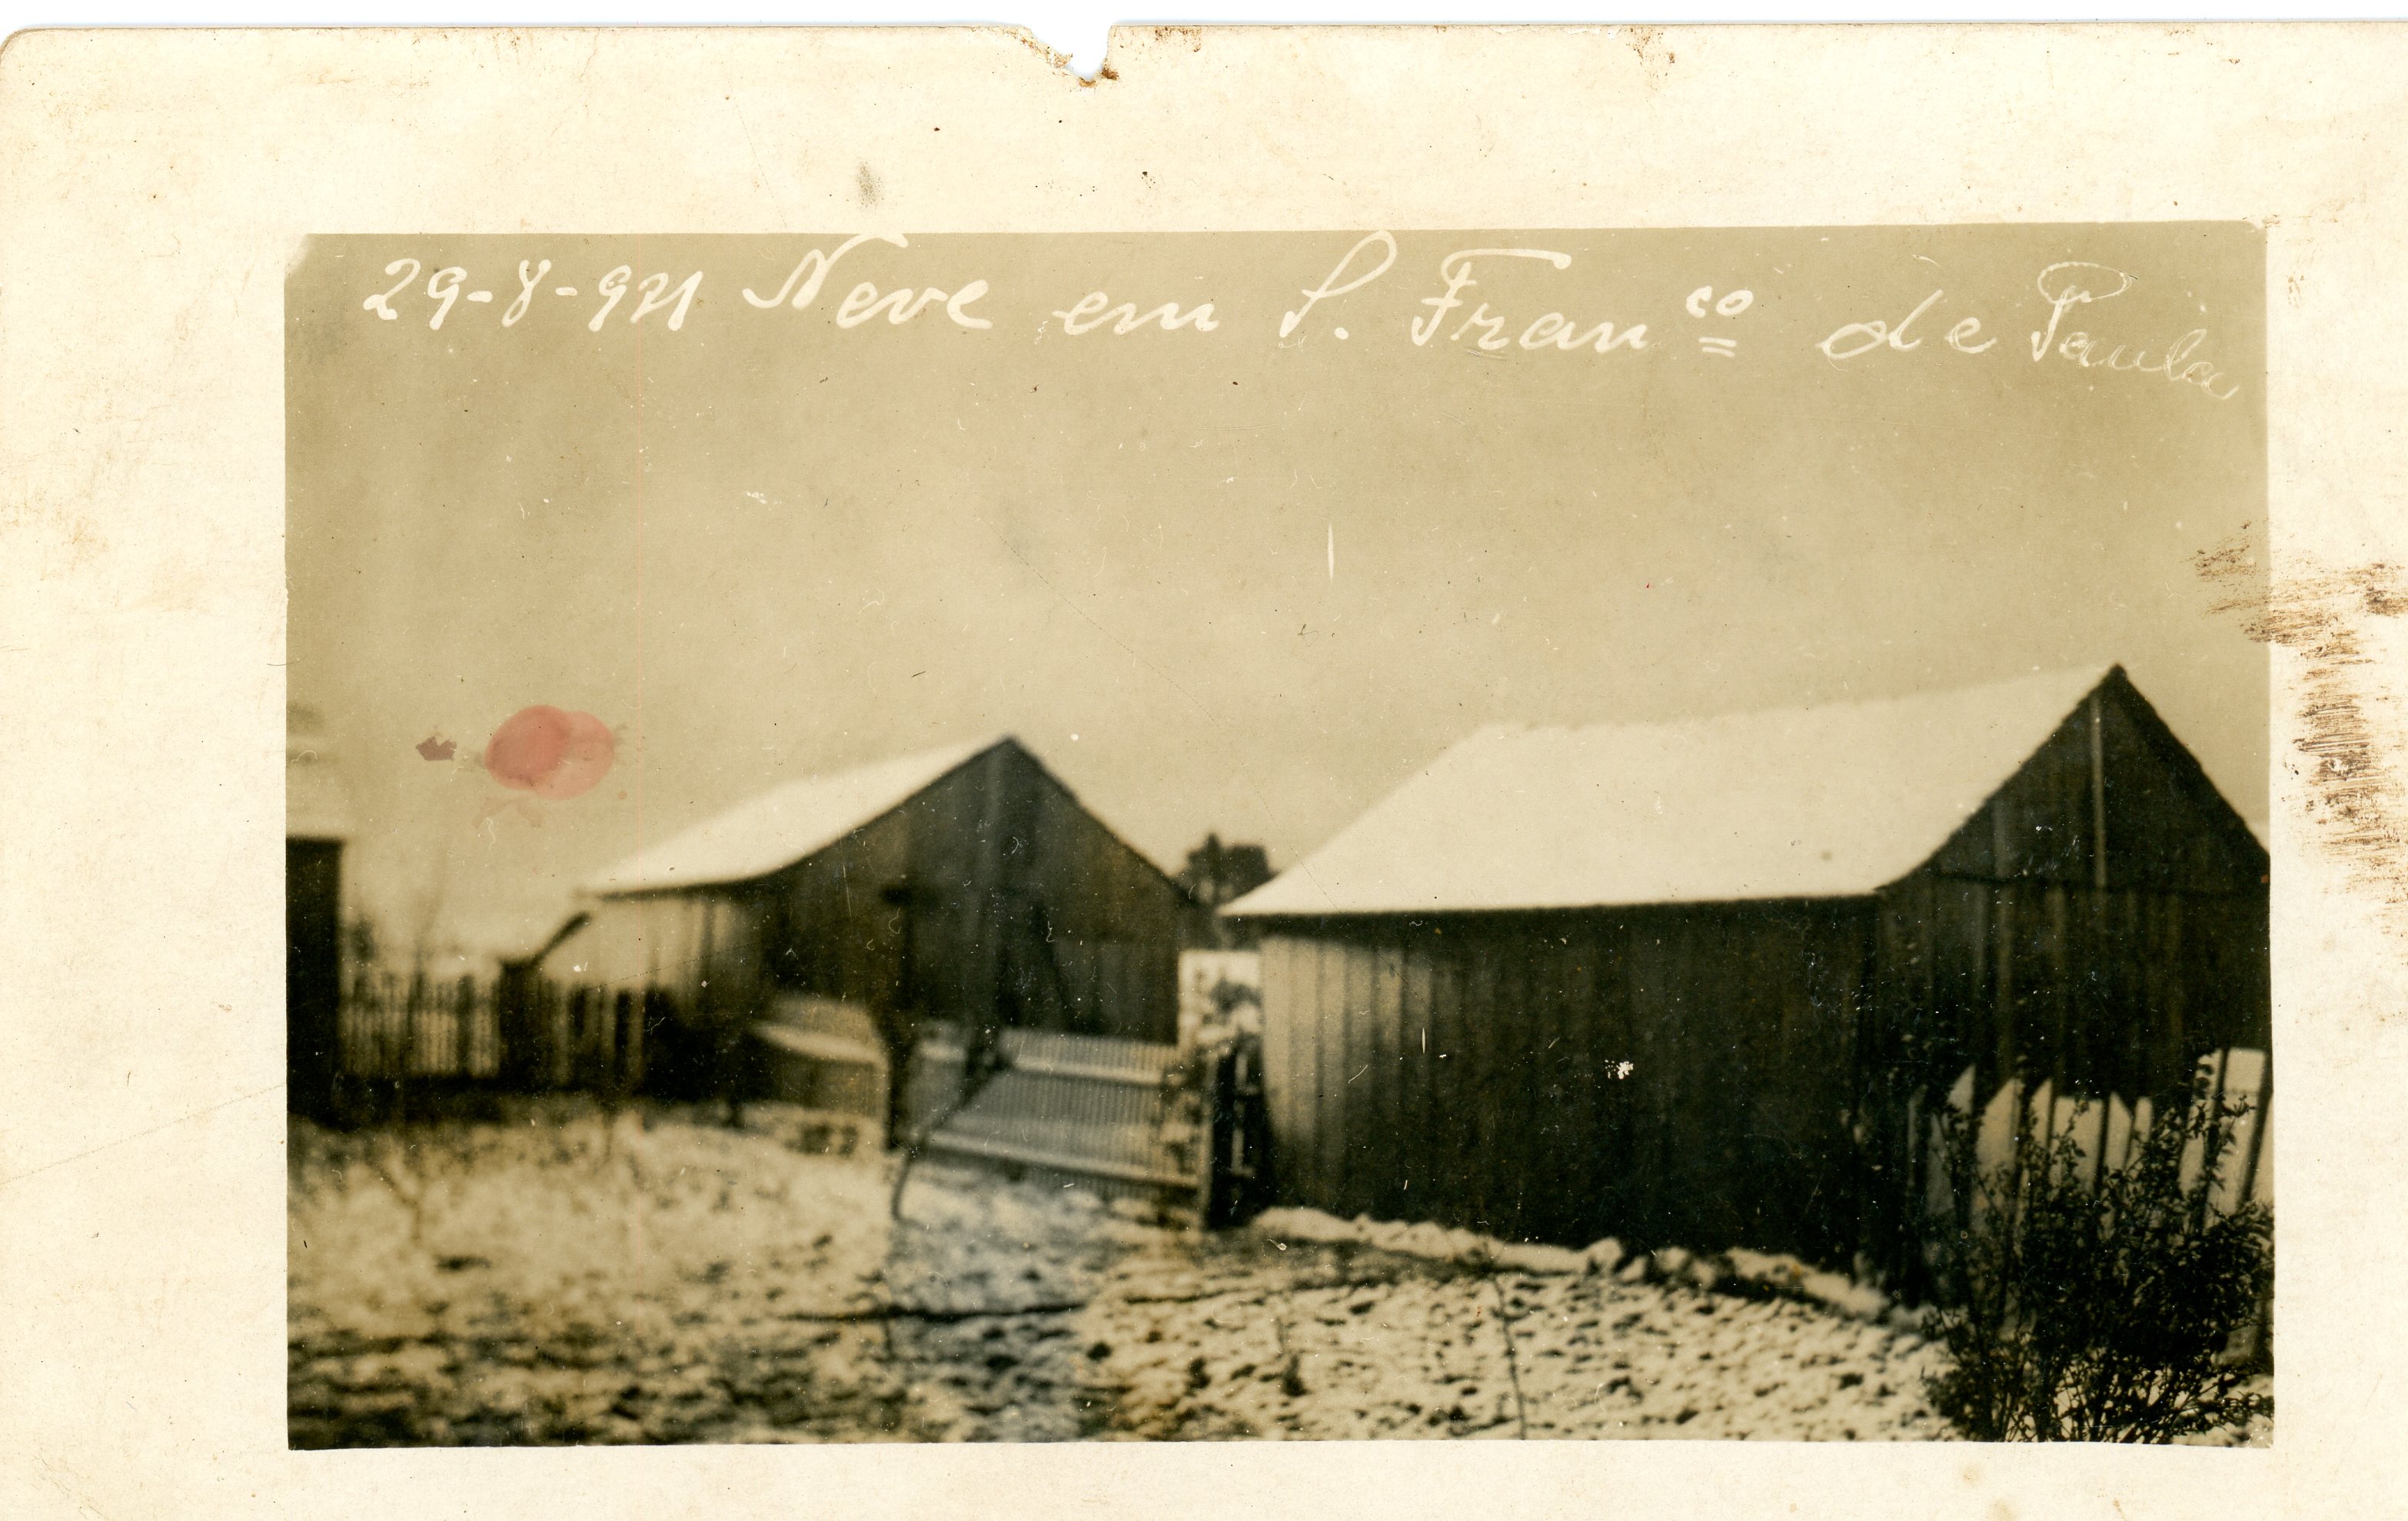 29-8-921 Neve em S. Fran.co de Paula